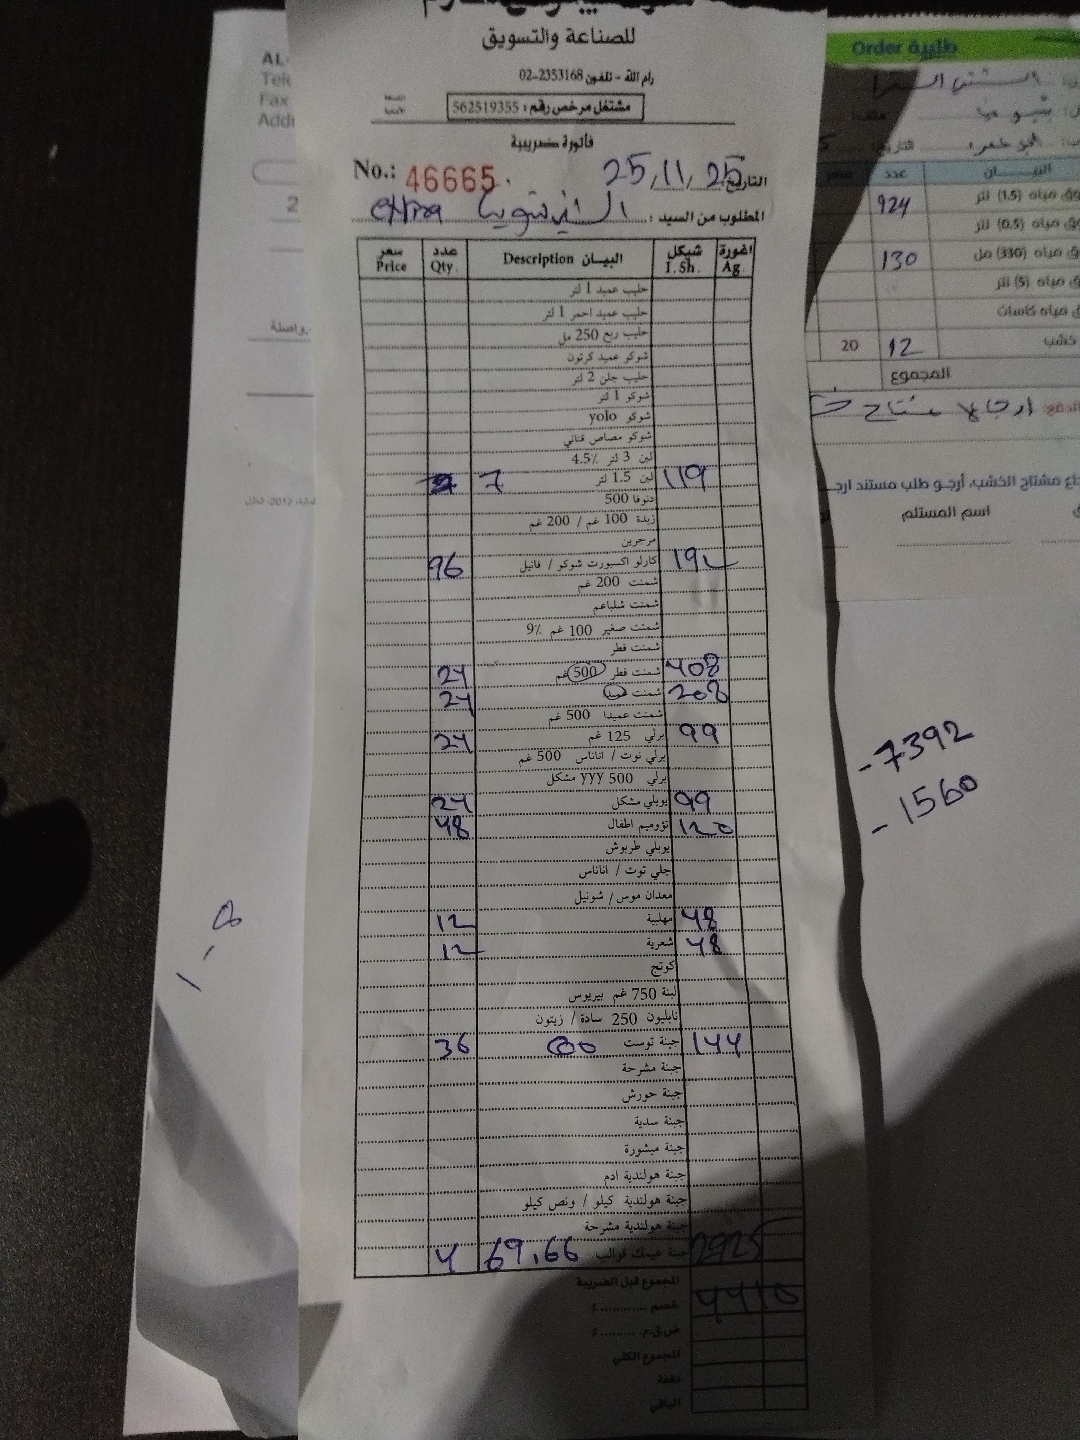 للصناعة والتسويق
رام الله - تلفون 2353168-02
مشتغل مرخص رقم: 562519355
فاتورة ضريبية
No.: 46665
التاريخ 25,11,25
المطلوب من السيد: extra
سعر عدد البيان Description شيكل اغورة
Price Qty. I.Sh. Ag.
حليب عميد 1 لتر
حليب عميد احمر 1 لتر
حليب ربع 250 مل
شوكو عميد كرتون
حليب جلن 2 لتر
شوكو 1 لتر
شوكو yolo
شوكو مصاص قناني
لبن 3 لتر 4.5٪
لبن 1.5 لتر 7 119
دنوفا 500
زبدة 100 غم / 200 غم
مرجرين
96 كارلو اكسبورت شوكو / فانيل 192
شمنت 200 غم
شمنت شلباعم
شمنت صغير 100 غم 9٪
شمنت فطر
24 شمنت فطر 500 غم 408
24 شمنت 208
شمنت عميدا 500 غم
24 برلي 125 غم 99
برلي توت / اناناس 500 غم
برلي yyy 500 مشكل
24 يوبلي مشكل 99
48 تؤوميم اطفال 120
يوبلي طربوش
جلي توت / اناناس
معدان موس / شونيل
12 مهلبية 48
12 شعرية 48
كوتج
لبنة 750 غم بيريوس
نابليون 250 سادة / زيتون
36 جبنة توست 144
جبنة مشرحة
جبنة حورش
جبنة سدية
جبنة مبشورة
جبنة هولندية ادم
جبنة هولندية كيلو / ونص كيلو
جبنة هولندية مشرحة
4 69,66 جبنة عيمك قوالب 2925
المجموع قبل الضريبة
خصم .......... ٪ 4410
ض.ق.م. ......... ٪
المجموع الكلي
دفعة
الباقي
طلبية Order
البيـــــان عدد
مياه (1.5) لتر 924
مياه (0.5) لتر
مياه (330) مل 130
مياه (5) لتر
مياه كاسات
خشب 12 20
المجموع
مشتاح الخشب، أرجو طلب مستند ارجـ
اسم المستلم
-7392
-1560
AL-
Tele
Fax
Addr
2
بواسطة